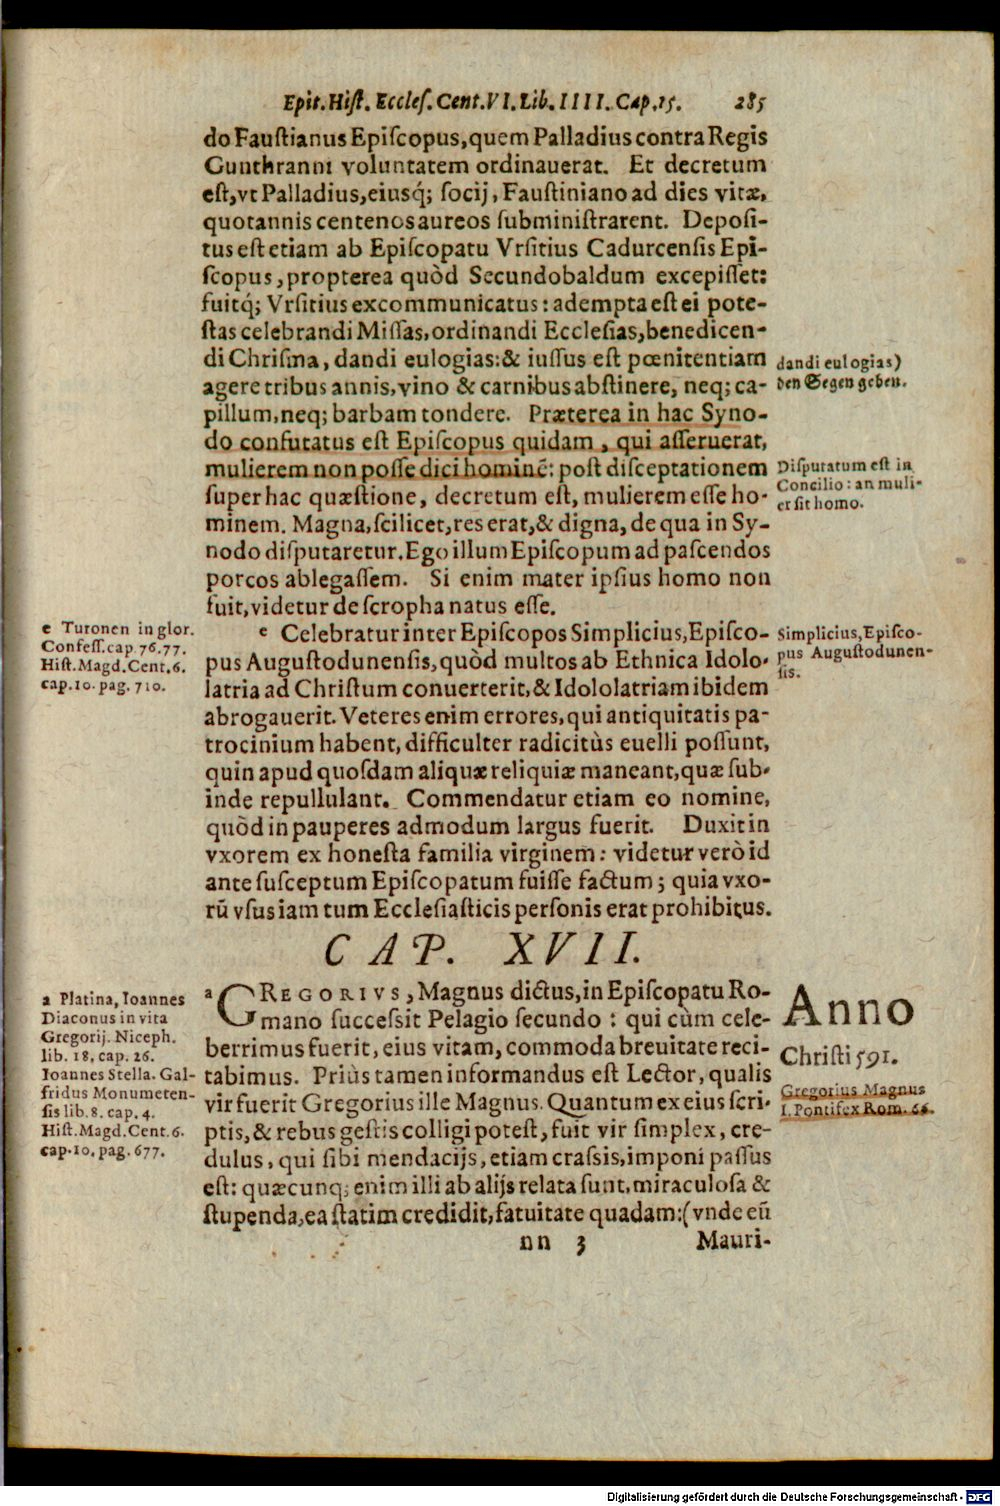 Epit. Hiſt. Eccleſ. Cent. VI. Lib. IIII. Cap. 15. 285
do Fauſtianus Epiſcopus, quem Palladius contra Regis
Gunthranni voluntatem ordinauerat. Et decretum
eſt, vt Palladius, eiusq́; ſocij, Fauſtiniano ad dies vitæ,
quotannis centenos aureos ſubminiſtrarent. Depoſi-
tus eſt etiam ab Epiſcopatu Vrſitius Cadurcenſis Epi-
ſcopus, propterea quòd Secundobaldum excepiſſet:
fuitq́; Vrſitius excommunicatus: adempta eſt ei pote-
ſtas celebrandi Miſſas, ordinandi Eccleſias, benedicen-
di Chriſma, dandi eulogias: & iuſſus eſt pœnitentiam
agere tribus annis, vino & carnibus abſtinere, neq; ca-
pillum, neq; barbam tondere. Præterea in hac Syno-
do confutatus eſt Epiſcopus quidam, qui aſſeruerat,
mulierem non poſſe dici hominē: poſt diſceptationem
ſuper hac quæſtione, decretum eſt, mulierem eſſe ho-
minem. Magna, ſcilicet, res erat, & digna, de qua in Sy-
nodo diſputaretur. Ego illum Epiſcopum ad paſcendos
porcos ablegaſſem. Si enim mater ipſius homo non
fuit, videtur de ſcropha natus eſſe.
dandi eulogias)
den Segen geben.
Diſputatum eſt in
Concilio: an muli-
er ſit homo.
e Turonen in glor.
Confeſſ. cap 76. 77.
Hiſt. Magd. Cent. 6.
cap. 10. pag. 710.
e Celebratur inter Epiſcopos Simplicius, Epiſco-
pus Auguſtodunenſis, quòd multos ab Ethnica Idolo-
latria ad Chriſtum conuerterit, & Idololatriam ibidem
abrogauerit. Veteres enim errores, qui antiquitatis pa-
trocinium habent, difficulter radicitùs euelli poſſunt,
quin apud quoſdam aliquæ reliquiæ maneant, quæ ſub-
inde repullulant. Commendatur etiam eo nomine,
quòd in pauperes admodum largus fuerit. Duxit in
vxorem ex honeſta familia virginem: videtur verò id
ante ſuſceptum Epiſcopatum fuiſſe factum; quia vxo-
rū vſus iam tum Eccleſiaſticis perſonis erat prohibitus.
Simplicius, Epiſco-
pus Auguſtodunen-
ſis.
CAP. XVII.
a Platina, Ioannes
Diaconus in vita
Gregorij. Niceph.
lib. 18. cap. 26.
Ioannes Stella. Gal-
fridus Monumeten-
ſis lib. 8. cap. 4.
Hiſt. Magd. Cent. 6.
cap. 10. pag. 677.
a GREGORIVS, Magnus dictus, in Epiſcopatu Ro-
mano ſucceſsit Pelagio ſecundo: qui cùm cele-
berrimus fuerit, eius vitam, commoda breuitate reci-
tabimus. Priùs tamen informandus eſt Lector, qualis
vir fuerit Gregorius ille Magnus. Quantum ex eius ſcri-
ptis, & rebus geſtis colligi poteſt, fuit vir ſimplex, cre-
dulus, qui ſibi mendacijs, etiam craſsis, imponi paſſus
eſt: quæcunq; enim illi ab alijs relata ſunt, miraculoſa &
ſtupenda, ea ſtatim credidit, fatuitate quadam: (vnde eū
Anno
Chriſti 591.
Gregorius Magnus
I. Pontifex Rom. 66.
nn 3 Mauri-
Digitalisierung gefördert durch die Deutsche Forschungsgemeinschaft - DFG